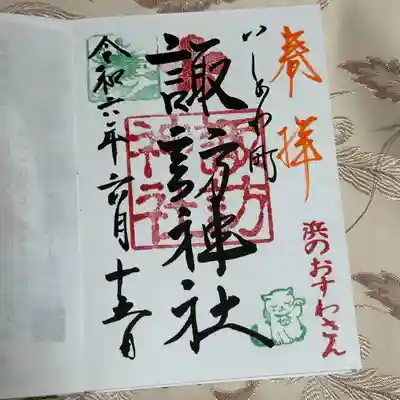 奉拝
浜のおすわさん
いしかわ町
諏訪神社
諏訪
神社
令和六年六月十五日